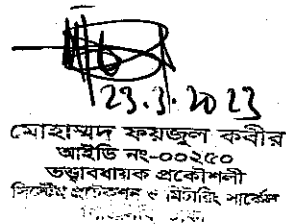 23.3.2023
মোহাম্মদ ফয়জুল কবীর
আইডি নং-০০২৫০
তত্ত্বাবধায়ক প্রকৌশলী
সিস্টেম প্রটেকশন ও মিটারিং সার্কেল
ঢাকা